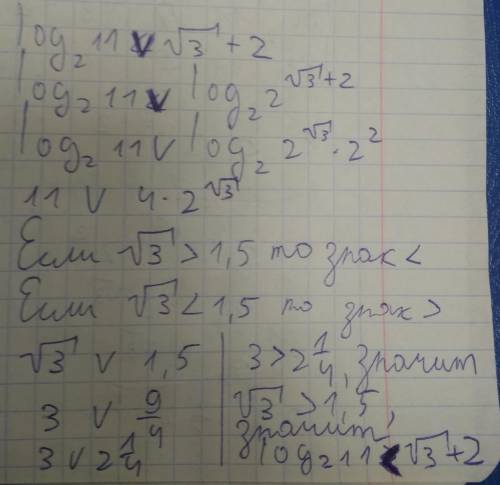 log₂ 11 v √3 + 2
log₂ 11 v log₂ 2^(√3+2)
log₂ 11 v log₂ 2^√3 · 2²
11 v 4 · 2^√3
Если √3 > 1,5 то знак <
Если √3 < 1,5 то знак >
√3 v 1,5
3 v 9/4
3 v 2 1/4
3 > 2 1/4, значит
√3 > 1,5,
значит,
log₂ 11 < √3 + 2